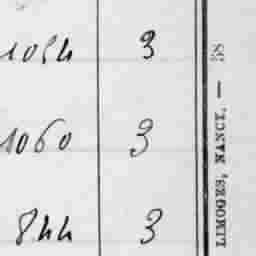 1054 3
1060 3
844 3
LIMOGES, NANCY. —